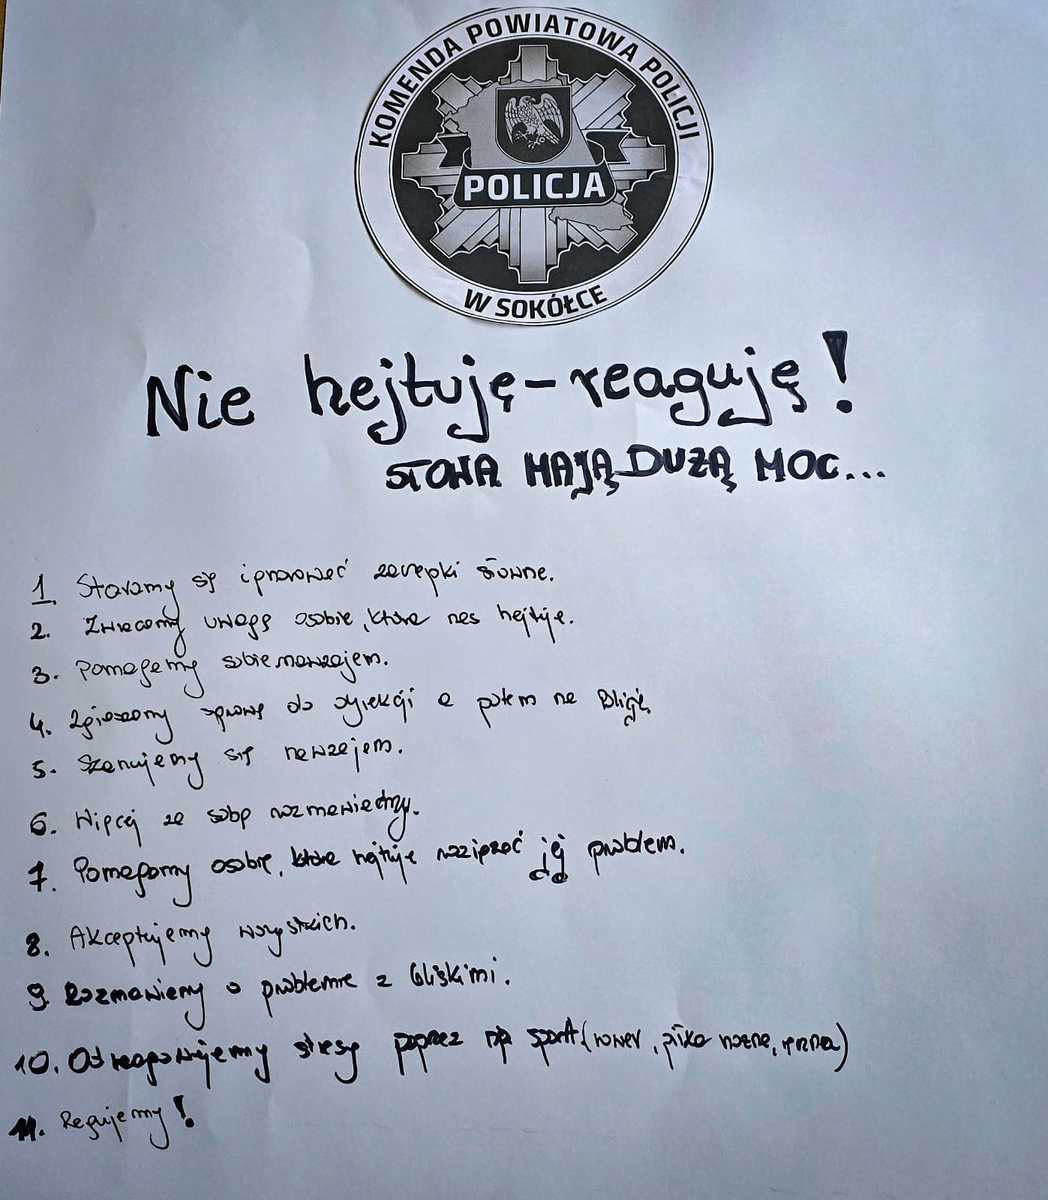 KOMENDA POWIATOWA POLICJI
POLICJA
W SOKÓŁCE
Nie hejtuję - reaguję!
SŁOWA MAJĄ DUŻĄ MOC...
1. Staramy się ignorować zaczepki słowne.
2. Zwracamy uwagę osobie, która nas hejtuje.
3. Pomagamy sobie nawzajem.
4. Zgłaszamy sprawę do dyrekcji a potem na Policję
5. Szanujemy się nawzajem.
6. Więcej ze sobą rozmawiamy.
7. Pomagamy osobie, która hejtuje rozwiązać jej problem.
8. Akceptujemy wszystkich.
9. Rozmawiamy o problemie z bliskimi.
10. Odreagowujemy stresy poprzez np sport (rower, piłka nożna,
11. Reagujemy!